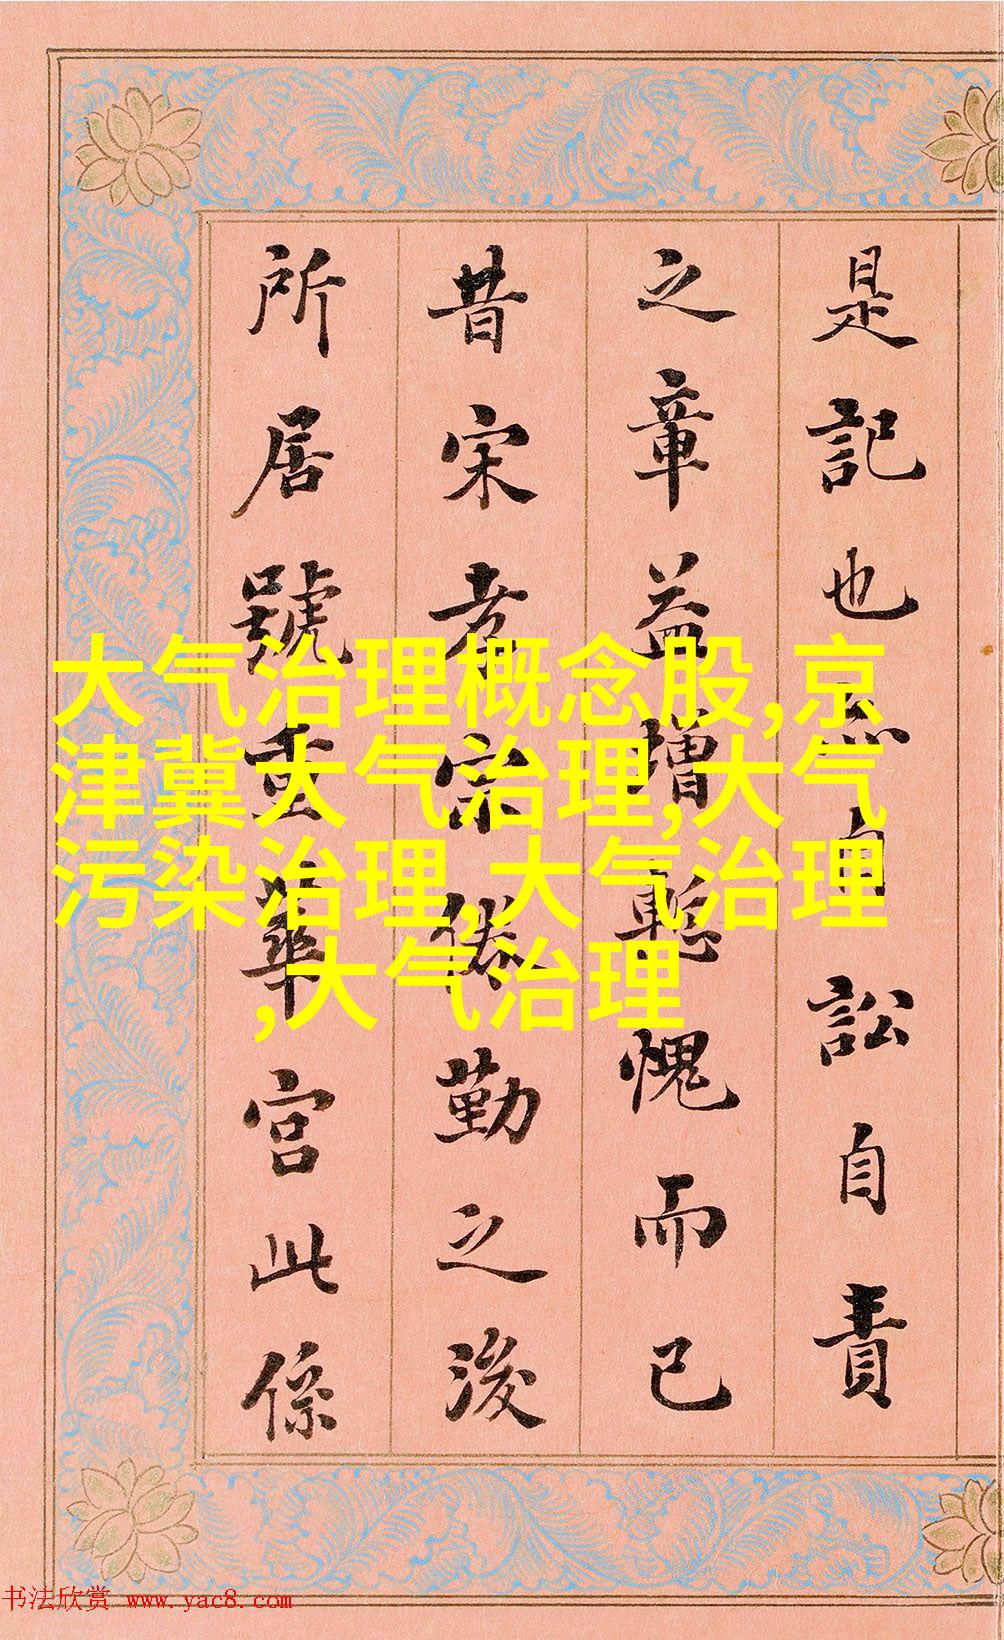 是記也自訟自責
之章益增慙愧而已
昔宋孝宗倦勤之後
所居號重華宮此係
大气治理概念股,京
津冀大气治理,大气
污染治理,大气治理
,大气治理
书法欣赏 www.yac8.com